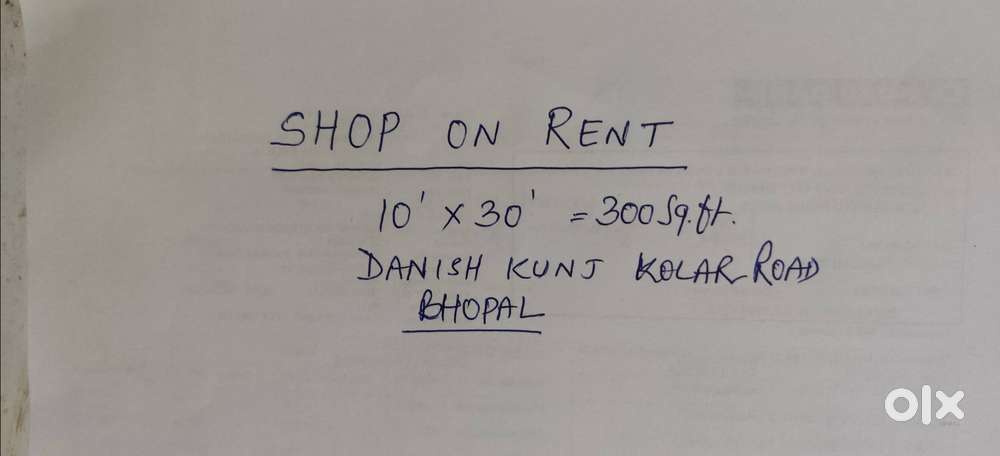 SHOP ON RENT
10' x 30' = 300 Sq.ft.
DANISH KUNJ KOLAR ROAD
BHOPAL
olx